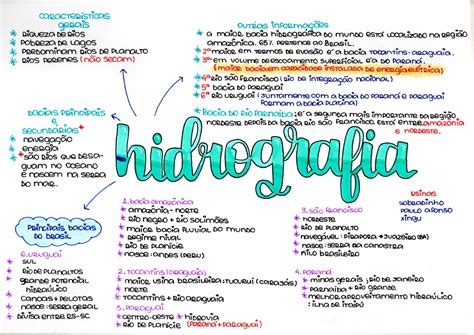 CARACTERÍSTICAS
GERAIS
* RIQUEZA DE RIOS
* POBREZA DE LAGOS
* PREDOMINAM RIOS DE PLANALTO
* RIOS PERENES (NÃO SECAM)
OUTRAS INFORMAÇÕES
* A MAIOR BACIA HIDROGRÁFICA DO MUNDO ESTÁ LOCALIZADA NA REGIÃO
AMAZÔNICA. 65% PERTENCE AO BRASIL.
* 2ª MAIOR EM TERMOS DE EVAZÃO É A BACIA DO TOCANTINS-ARAGUAIA.
* 3ª EM VOLUME DE ESCOAMENTO SUPERFICIAL É A DO PARANÁ.
(MAIOR BACIA EM CAPACIDADE INSTALADA DE ENERGIA ELÉTRICA)
4ª RIO SÃO FRANCISCO (RIO DE INTEGRAÇÃO NACIONAL)
5ª BACIA DO PARAGUAI
6ª RIO URUGUAI (JUNTAMENTE COM A BACIA DO PARANÁ E PARAGUAI
FORMAM A BACIA PLATINA)
* BACIA DO RIO PARNAÍBA: É A SEGUNDA MAIS IMPORTANTE DA REGIÃO
NORDESTE DEPOIS DA BACIA RIO SÃO FRANCISCO. ESTÁ ENTRE AMAZÔNIA
E NORDESTE.
BACIAS PRINCIPAIS
E
SECUNDÁRIAS
* NAVEGAÇÃO
* ENERGIA
* SÃO RIOS QUE DESA-
GUAM NO OCEANO
E NASCEM NA SERRA
DO MAR.
hidrografia
PRINCIPAIS BACIAS
DO BRASIL
1. BACIA AMAZÔNICA
* AMAZÔNIA - NORTE
* RIO NEGRO + RIO SOLIMÕES
* MAIOR BACIA FLUVIAL DO MUNDO
* REGIME NIVAL
* RIO DE PLANÍCIE
* NASCE: ANDES (PERU)
2. TOCANTINS (ARAGUAIA)
* MAIOR USINA BRASILEIRA: TUCURUÍ (CARAJÁS)
* NORTE
* TOCANTINS + RIO ARAGUAIA
5. PARAGUAI
* CENTRO-OESTE * HIDROVIA
* RIO DE PLANÍCIE (PARANÁ + PARAGUAI)
6. URUGUAI
* SUL
* RIO DE PLANALTOS
* GRANDE POTENCIAL
HIDRÁULICO
* CANOAS + PELOTAS
* NASCE: SERRA GERAL
* DIVISA ENTRE RS-SC
3. SÃO FRANCISCO
* NORDESTE
* RIO DE PLANALTO
* NAVEGÁVEL: PIRAPORA + JUAZEIRO (BA)
* NASCE: SERRA DA CANASTRA
* RIO DISCIPLINADO
USINAS
SOBRADINHO
PAULO AFONSO
XINGU
4. PARANÁ
* MINAS GERAIS, RIO DE JANEIRO
* PARNAÍBA + RIO GRANDE
* MELHOR APROVEITAMENTO HIDRÁULICO
(ILHA DE ITAIPU)